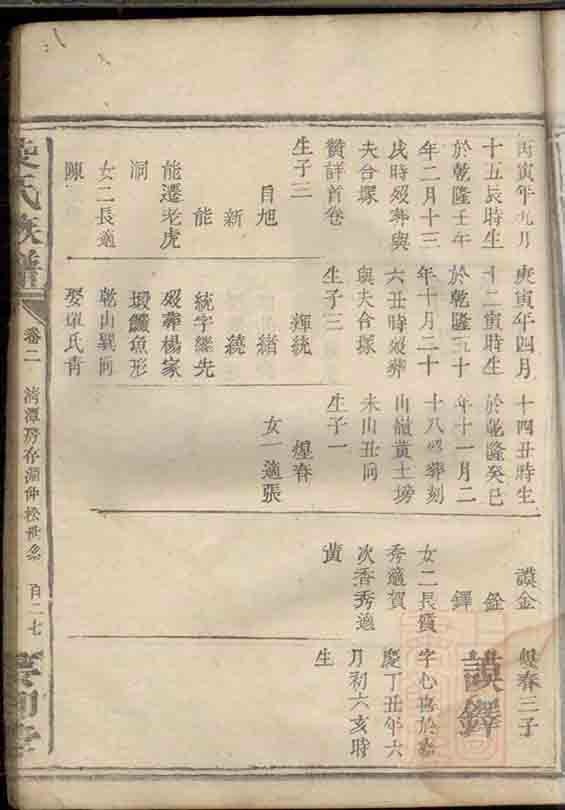 丙寅年九月
十五辰時生
於乾隆壬午
年二月十三
戌時歿葬與
夫合塚
贊詳首卷
生子三
自旭
新
能
能遷老虎
洞
女二長適
陳
庚寅年四月
十二寅時生
於乾隆五十
年十月二十
六丑時歿葬
與夫合塚
生子三
輝統
緒
繞
統字繼先
歿葬楊家
塅鱖魚形
乾山巽向
娶單氏青
十四丑時生
於乾隆癸巳
年十一月二
十八葬刻
山嶺黃土塝
未山丑向
生子一
煌春
女一適張
謨金
銓
鐸
女二長質
秀適賀
次香秀適
黃
煌春三子
謨鐸
字心於嘉
慶丁丑年六
月初六亥時
生
氏族譜
卷二
灣潭房存淵仲松世系
百二七